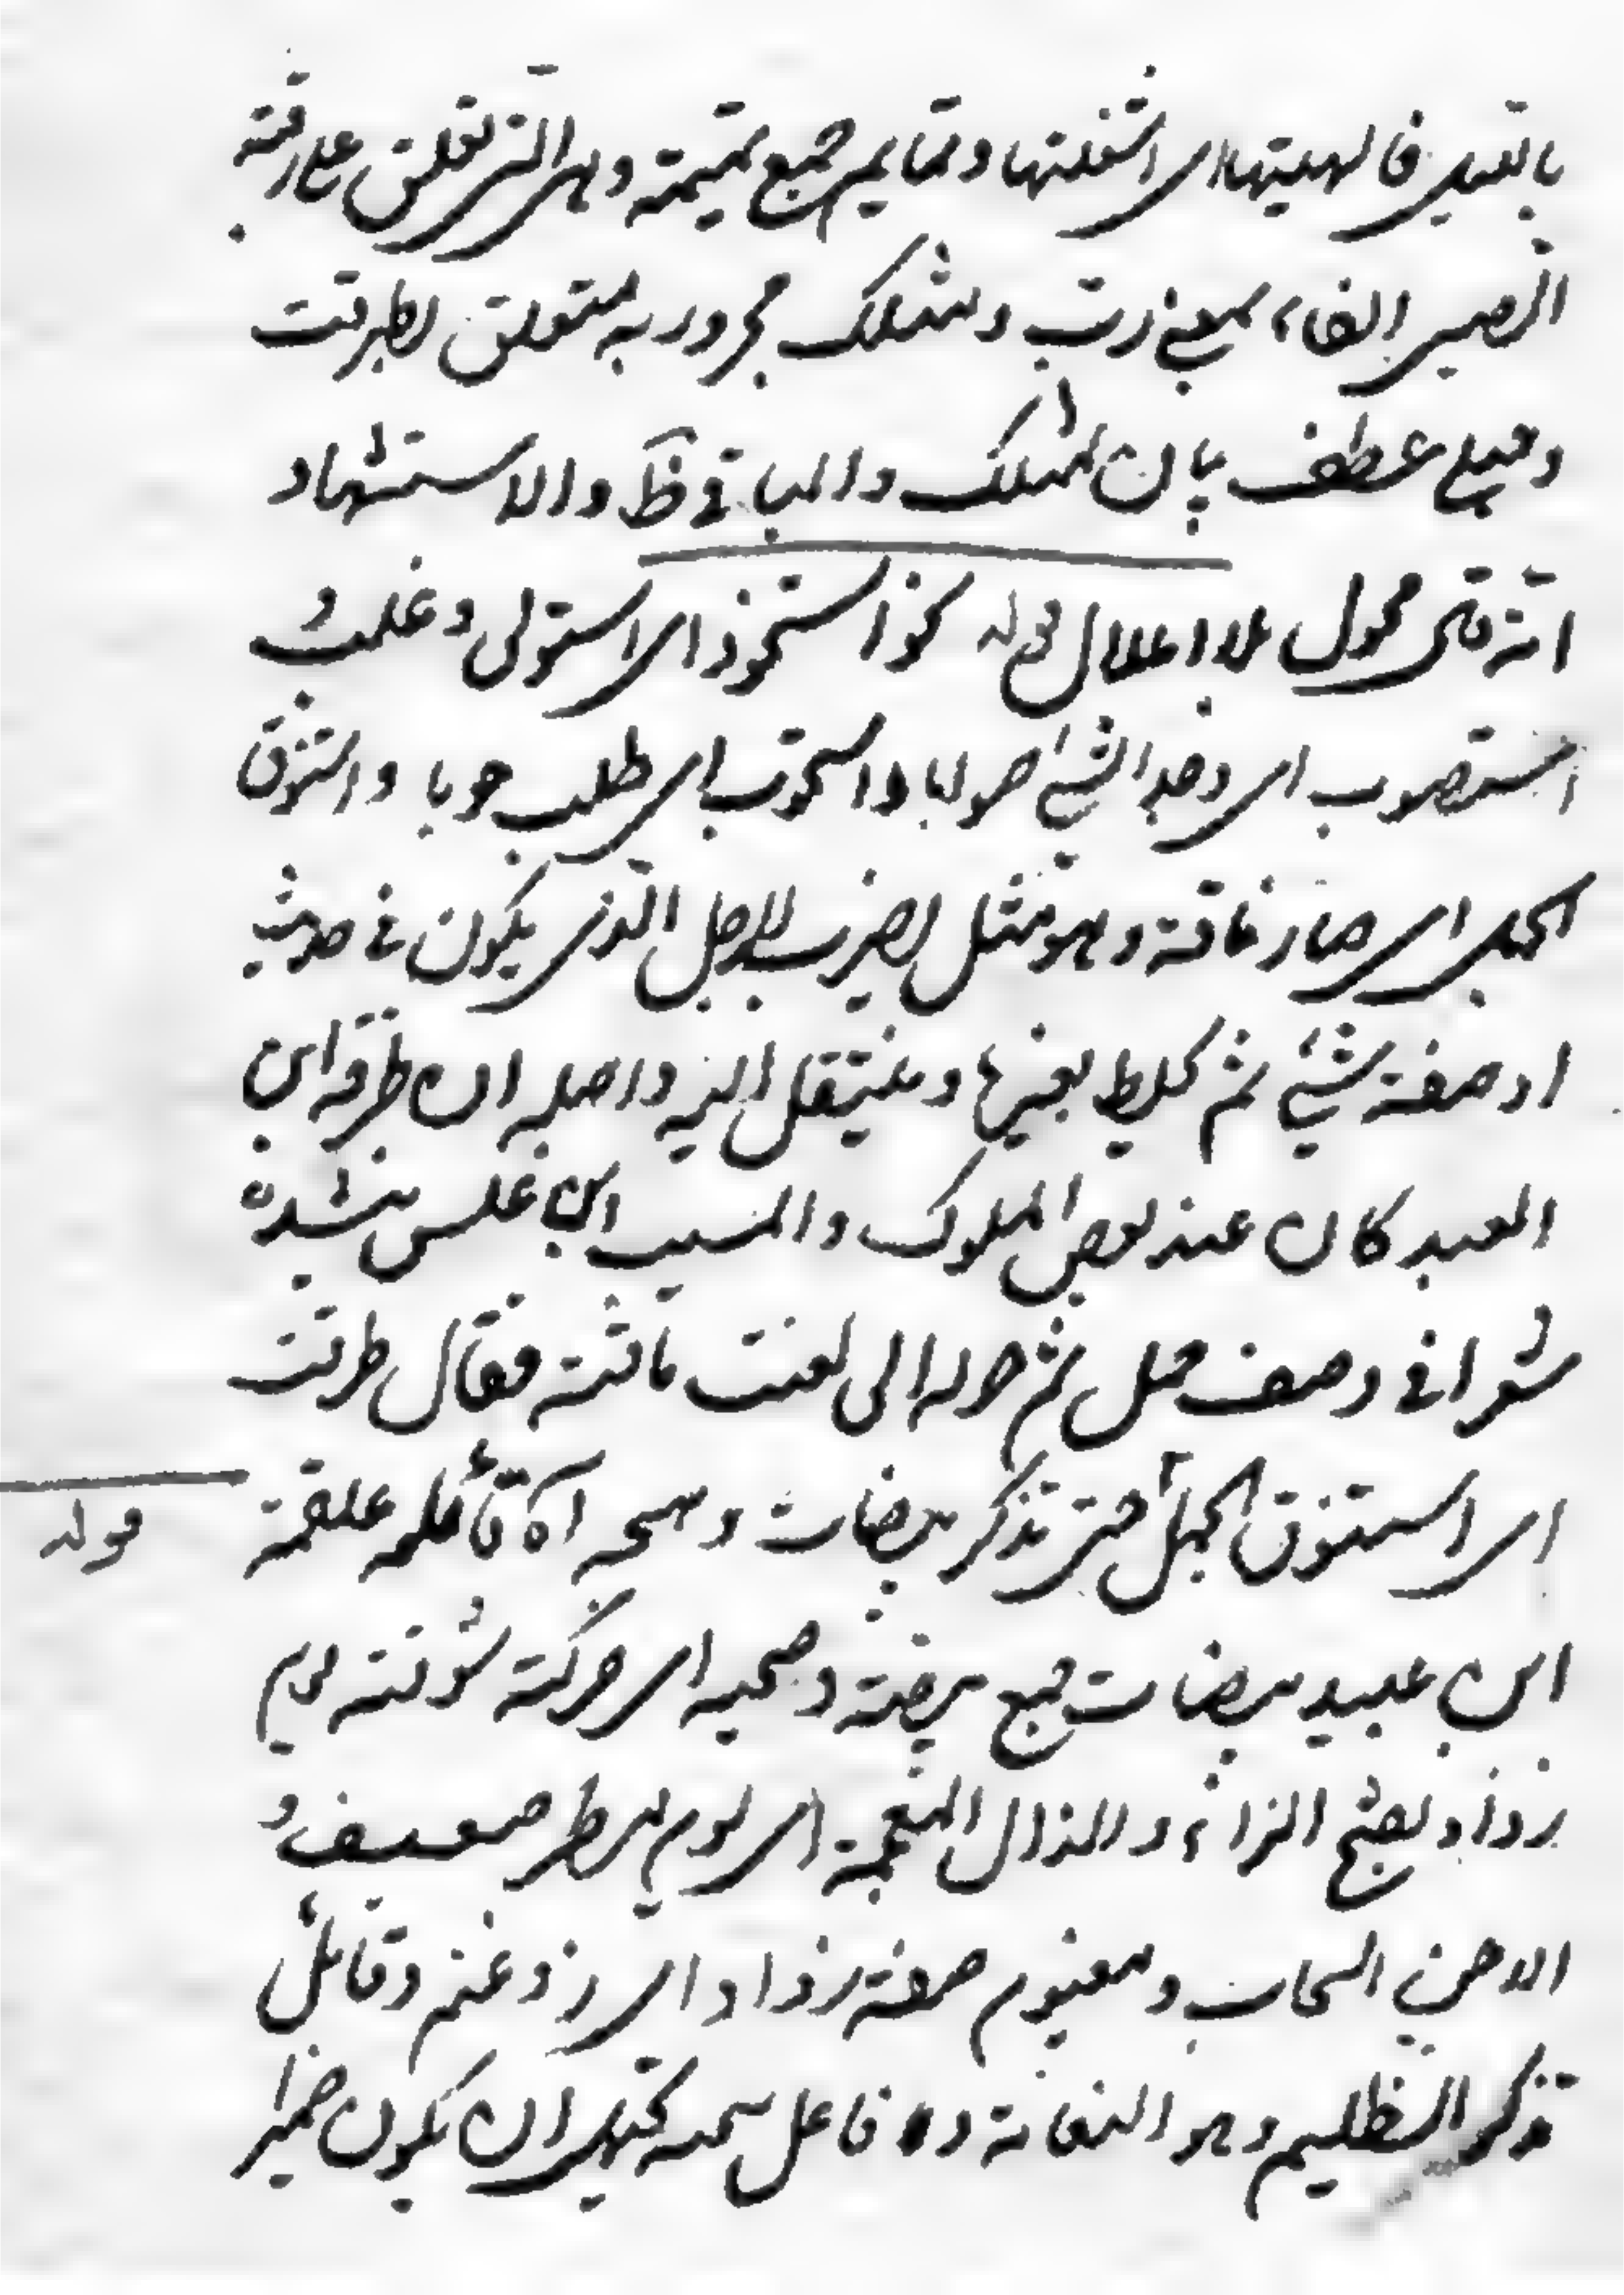 بالتعيد فالهيتها اى اشغلتها وتمايم جمع تميمة وهى التى تعلق على رقبة
الصبى الفاء بمعنى رب ومثلك مجرور به متعلق بطرقت
ومرضع عطف بيان لمثلك والباقى ظ والاستشهاد
انه قى محمول على اعلال قوله نحو استحوذ اى استولى وغلب و
استصوب اى وجد الشئ صوابا واستجوب اى طلب جوابا واستنوق
الجمل اى صار ناقة وهو مثل يضرب للرجل الذى يكون فى حديث
او صفة شئ ثم يخلط بغيره وينتقل اليه واصله ان طرفة ابن
العبد كان عند بعض الملوك والمسيب ابن علس ينشده
شعرا فى وصف جمل ثم حوله الى نعت ناقته فقال طرفة
اى استنوق الجمل حتى تذكر بيضات وهيجه آه قائله علقمة
قوله
ابن عبيد بيضات جمع بيضة وهيجه اى حركته شوقته يوم
رذاذ بفتح الراء والذال المعجمة اى يوم مطر ضعيف و
الدجن السحاب ومغيوم صفة رذاذ اى رذ وغيم وقائل
تذكر الظليم وهو النعامة وه فاعل هيجه يحتمل ان يكون ضمير